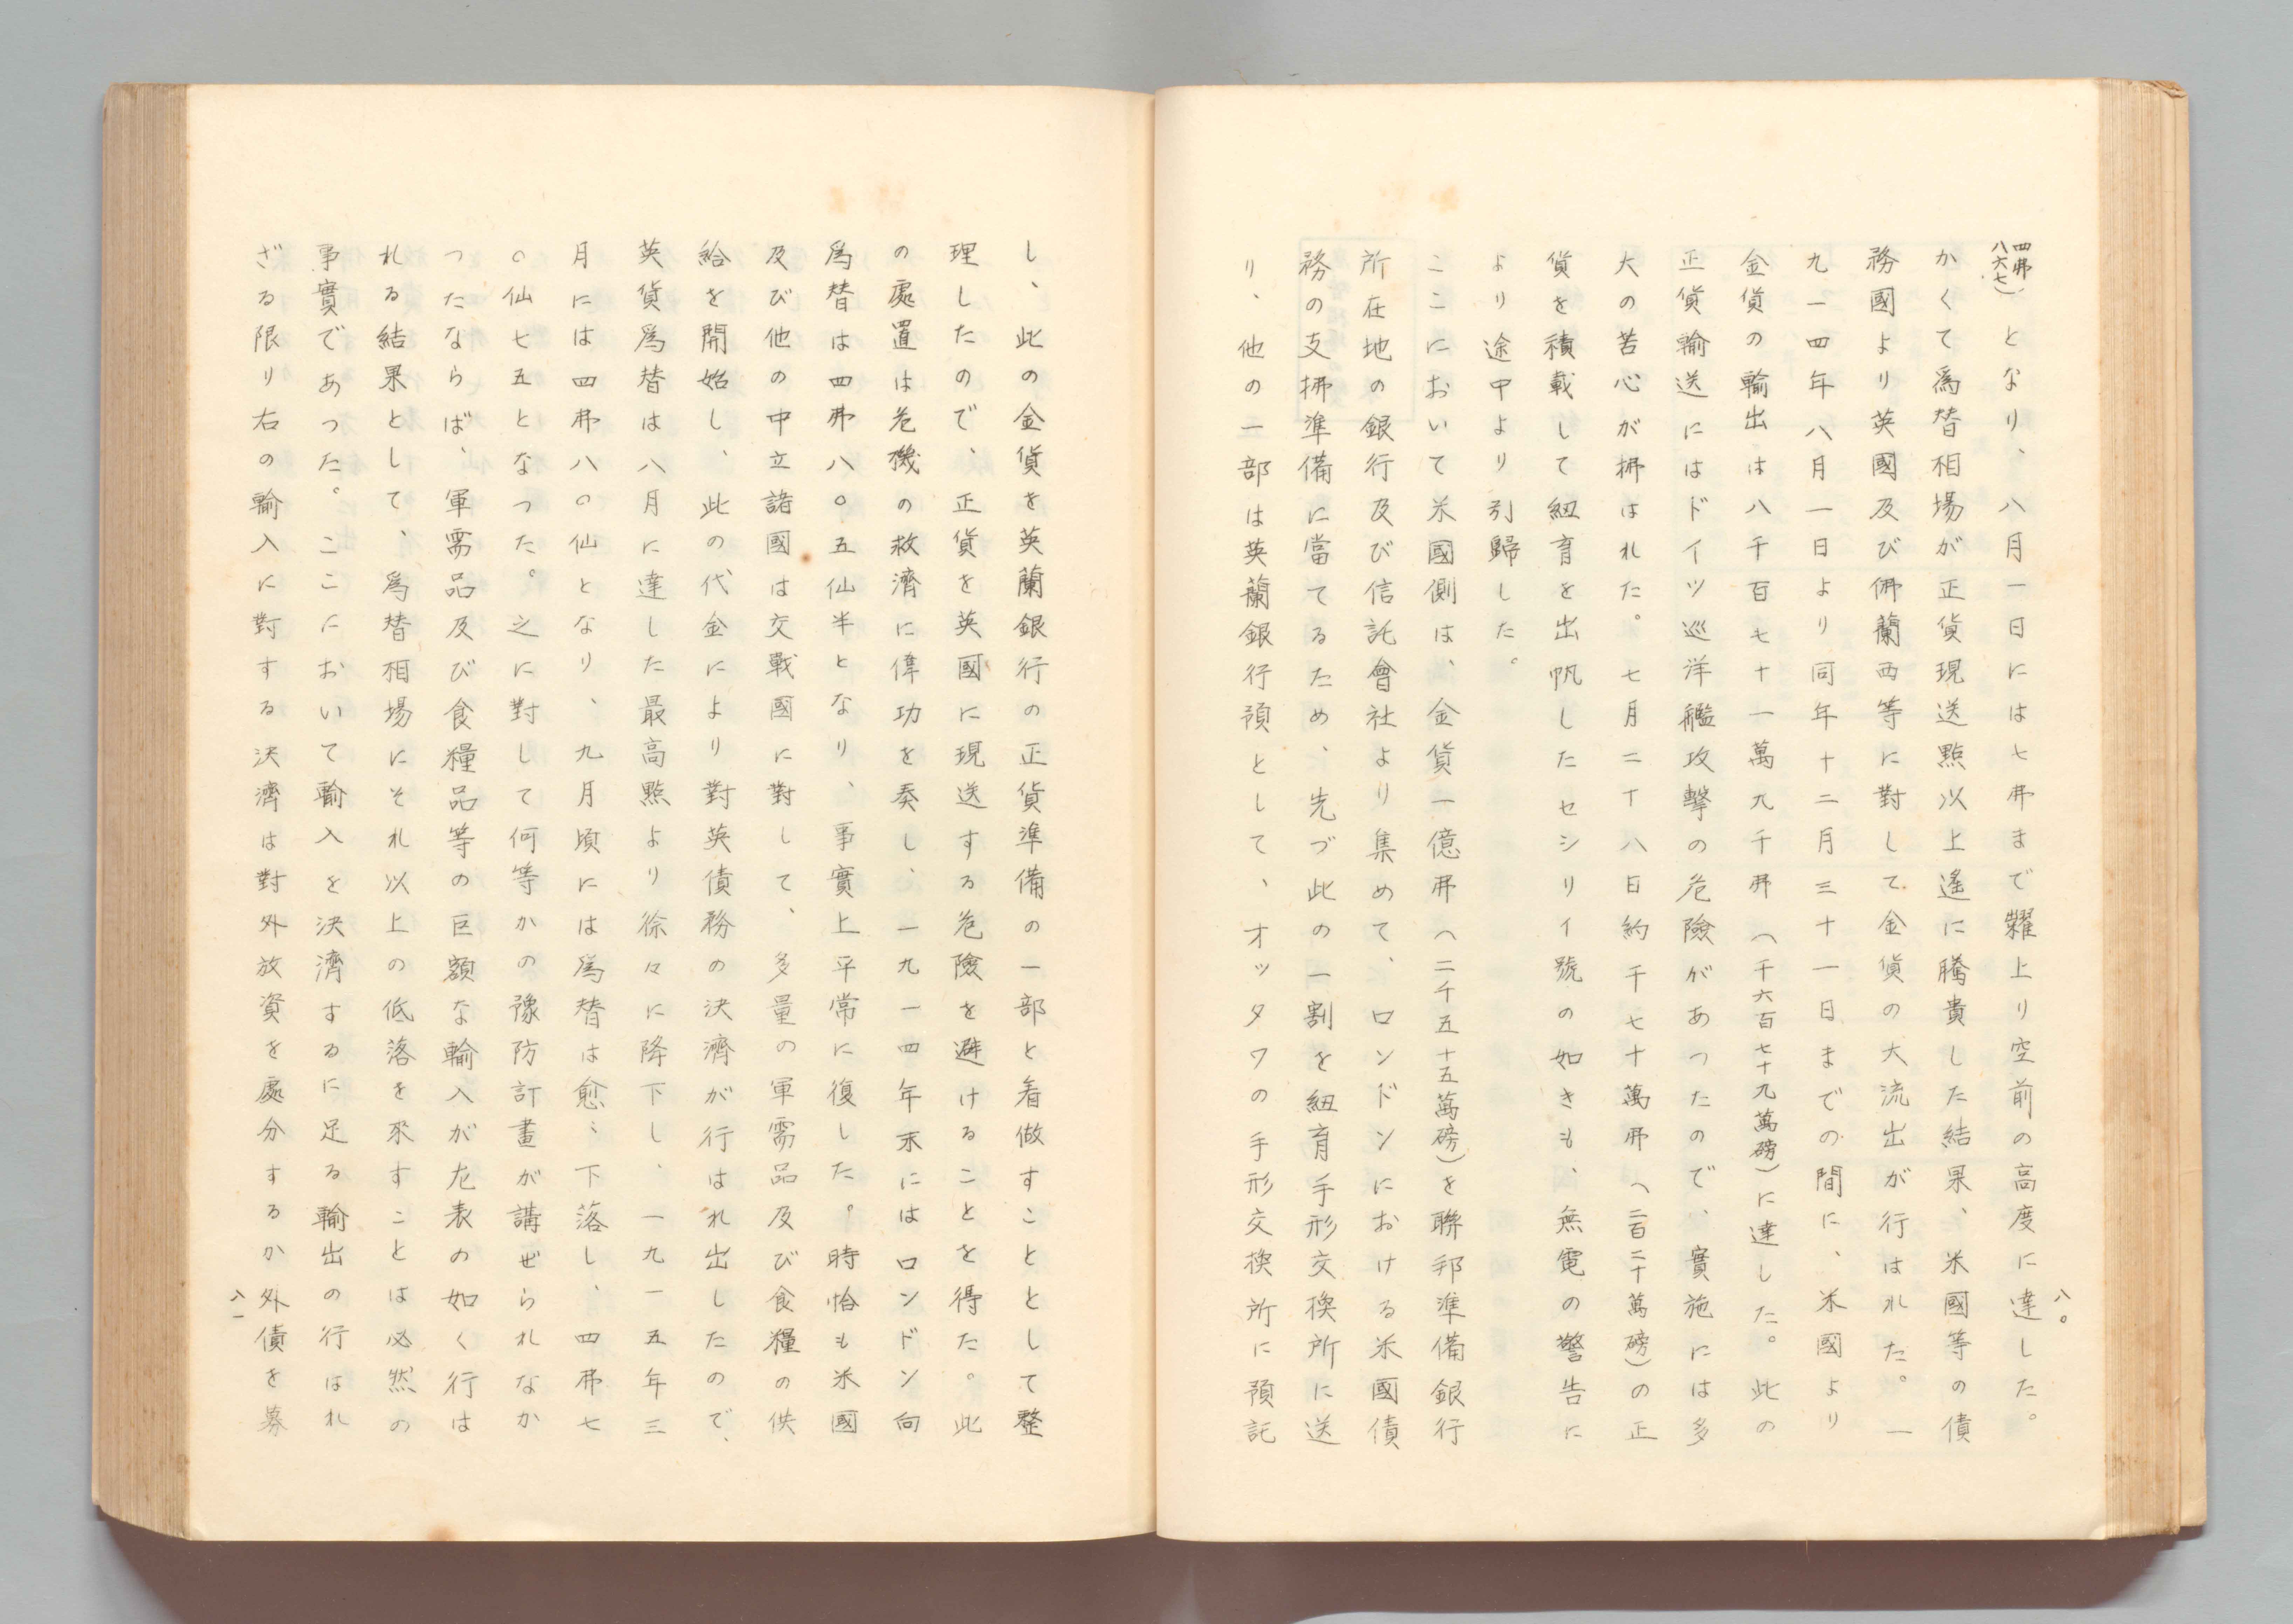 八〇
四弗
八六七）となり、八月一日には七弗まで糶上り空前の高度に達した。
かくて爲替相場が正貨現送點以上遙に騰貴した結果、米國等の債
務國より英國及び佛蘭西等に對して金貨の大流出が行はれた。一
九一四年八月一日より同年十二月三十一日までの間に、米國より
金貨の輸出は八千百七十一萬九千弗（千六百七十九萬磅）に達した。此の
正貨輸送にはドイツ巡洋艦攻擊の危險があつたので、實施には多
大の苦心が拂はれた。七月二十八日約千七十萬弗（二百二十萬磅）の正
貨を積載して紐育を出帆したセシリイ號の如きも、無電の警告に
より途中より引歸した。
ここにおいて米國側は、金貨一億弗（二千五十五萬磅）を聯邦準備銀行
所在地の銀行及び信託會社より集めて、ロンドンにおける米國債
務の支拂準備に當てるため、先づ此の一割を紐育手形交換所に送
り、他の一部は英蘭銀行預として、オッタワの手形交換所に預託
し、此の金貨を英蘭銀行の正貨準備の一部と看做すこととして整
理したので、正貨を英國に現送する危險を避けることを得た。此
の處置は危機の救濟に偉功を奏し、一九一四年末にはロンドン向
爲替は四弗八〇五仙半となり、事實上平常に復した。時恰も米國
及び他の中立諸國は交戰國に對して、多量の軍需品及び食糧の供
給を開始し、此の代金により對英債務の決濟が行はれ出したので、
英貨爲替は八月に達した最高點より徐々に降下し、一九一五年三
月には四弗八〇仙となり、九月頃には爲替は愈〻下落し、四弗七
〇仙七五となつた。之に對して何等かの豫防計畫が講ぜられなか
つたならば、軍需品及び食糧品等の巨額な輸入が左表の如く行は
れる結果として、爲替相場にそれ以上の低落を來すことは必然の
事實であつた。ここにおいて輸入を決濟するに足る輸出の行はれ
ざる限り右の輸入に對する決濟は對外放資を處分するか外債を募
八一